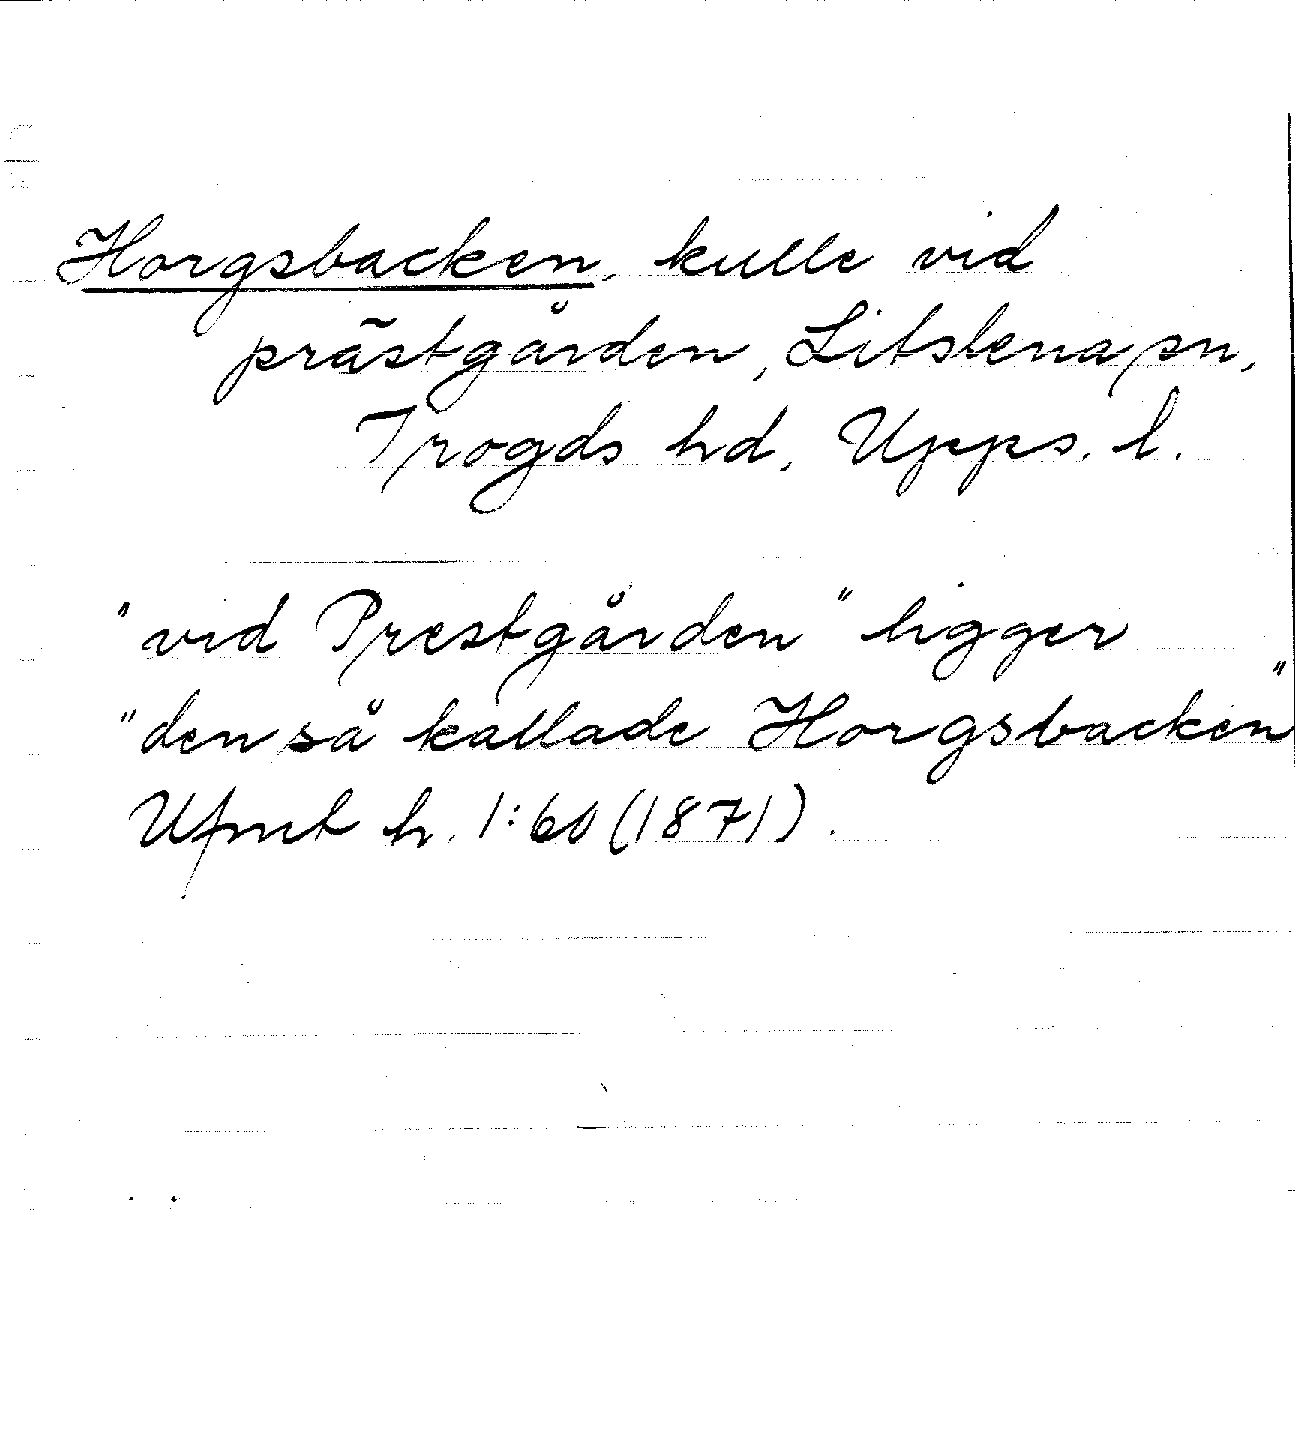 Horgsbacken, kulle vid
prästgården, Litslena sn,
Trogds hd, Upps. l.
"vid Prestgården" ligger
"den så kallade Horgsbacken"
Ufmt h. 1:60 (1871).